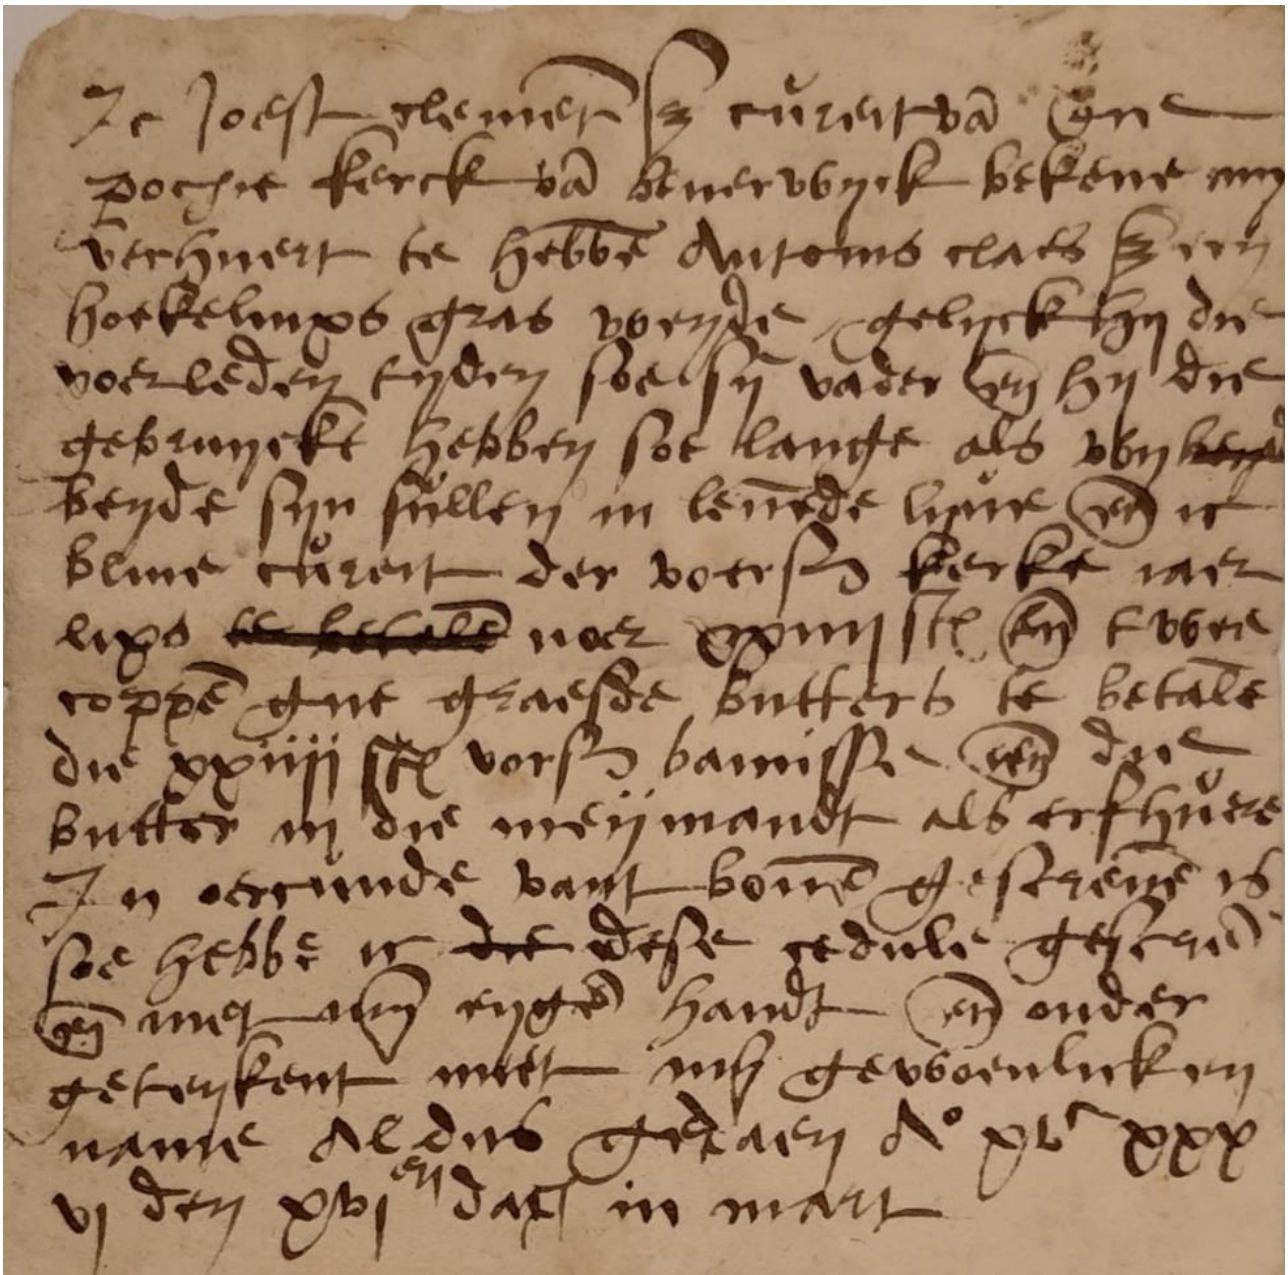 Ic Joest clemēt sz cůreit vā
pochie kerck vā beuerwyck bekene my
verhuert te hebbē Antonis claes sz een
hoekelincxs gras weyde gelyck hy die
voerleden tyden soe sÿ vader eñ hy die
gebruyckt hebben soe lange als wy
beyde syn sůllen in leuēde lyue eñ ic
bliue cůreit der voers kerke iaer
licxs te betalē voer xxiiij st eñ twee
coppē gue graesde butters te betalē
die xxiiij st vors bamisse eñ die
butter in die meÿmandt als erfhůere
In oercunde vant bouē gescreuē is
soe hebbe ic die dese cedule gescreuē
eñ met myn eygē handt eñ onder
geteykent met myn gewoenlicken
name Aldus gedaen A° xvc xxx
vj den xvjen dach in mart